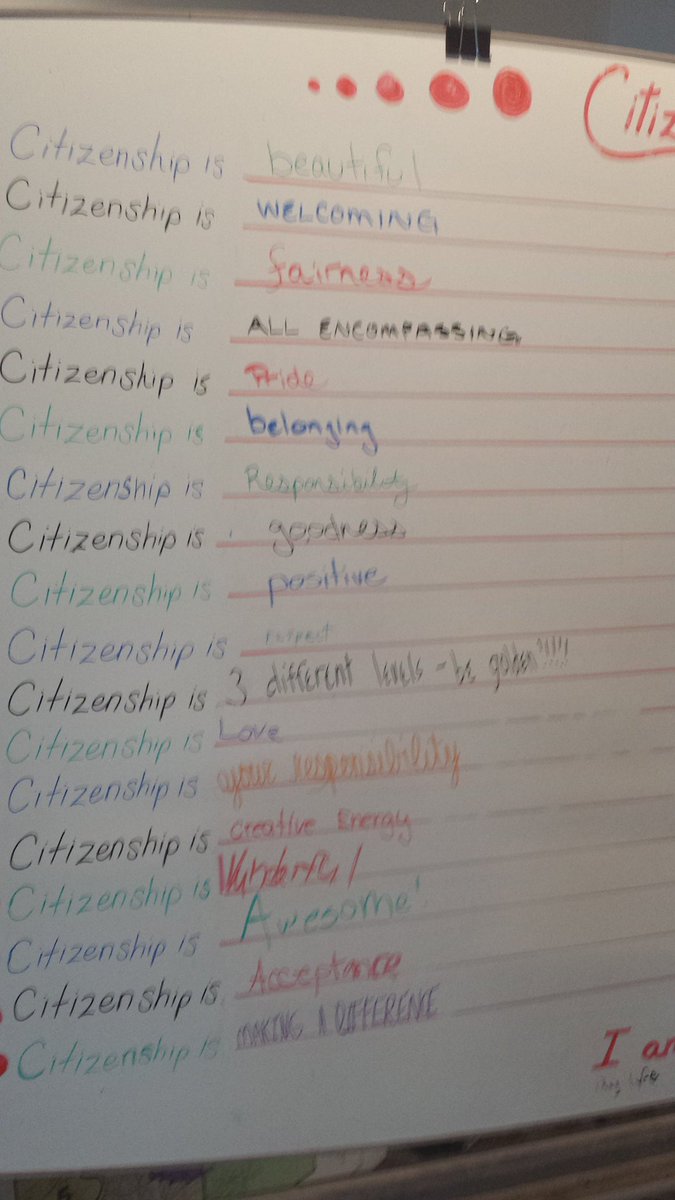 Citiz
Citizenship is beautiful
Citizenship is WELCOMING
Citizenship is fairness
Citizenship is ALL ENCOMPASSING
Citizenship is Pride
Citizenship is belonging
Citizenship is Responsibility
Citizenship is goodness
Citizenship is positive
Citizenship is respect
Citizenship is 3 different levels - be golden!!!!!
Citizenship is Love
Citizenship is your responsibility
Citizenship is Creative Energy
Citizenship is Wonderful
Citizenship is Awesome!
Citizenship is Acceptance
Citizenship is MAKING A DIFFERENCE
I am